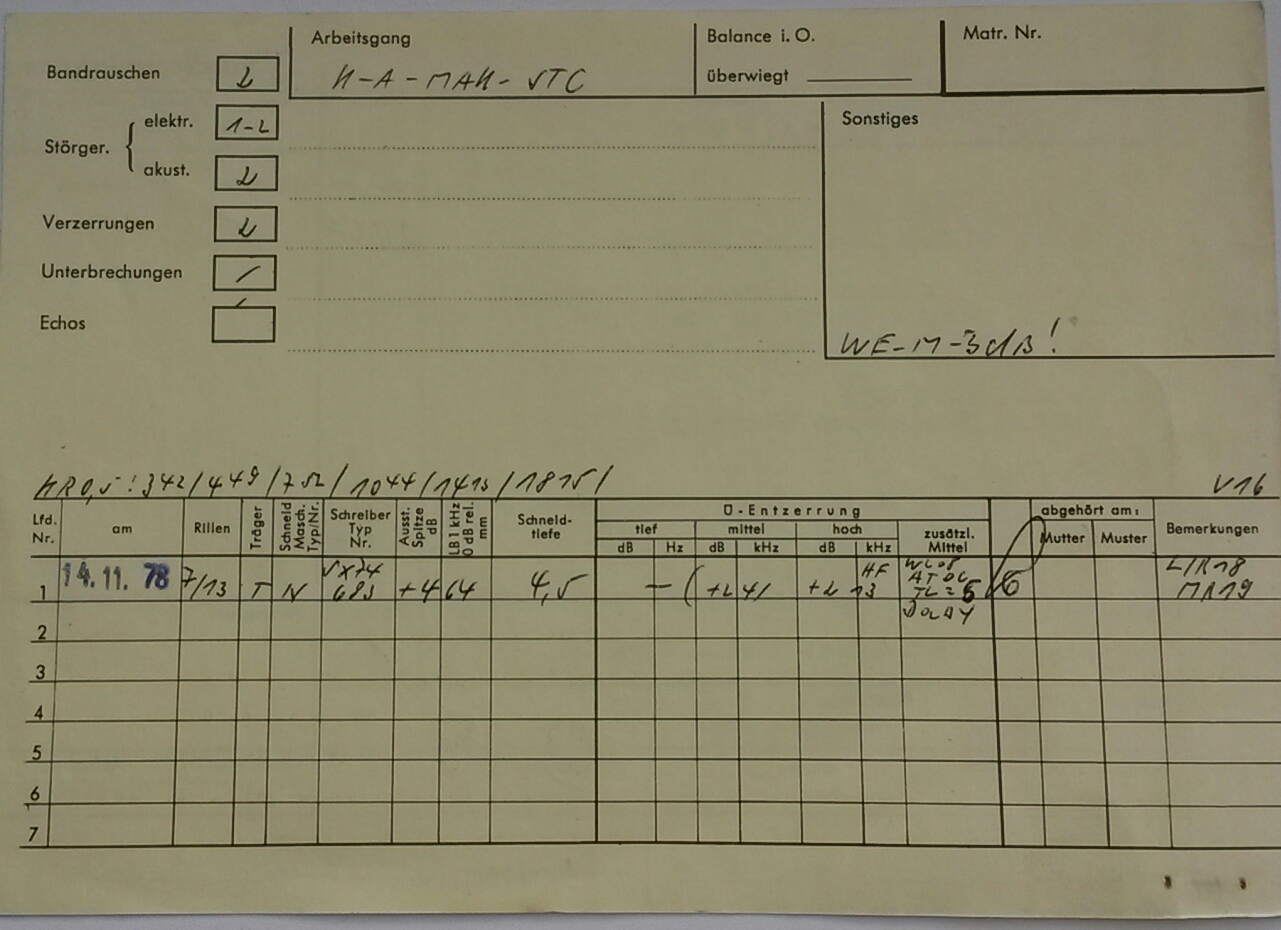 Arbeitsgang
Balance i. O.
Matr. Nr.
Bandrauschen 2
K-A-MAK-VTC
überwiegt
Störger.
elektr. 1-2
akust. 2
Sonstiges
Verzerrungen 2
Unterbrechungen /
Echos
WE-M-3dB!
KR 0,5: 342/449/752/1044/1413/1815/
V16
Lfd. Nr.
am
Rillen
Träger
Schneid Masch. Typ/Nr.
Schreiber Typ Nr.
Ausst. Spitze dB
LB 1 kHz 0 dB rel. mm
Schneid-
tiefe
Ü-Entzerrung
tief
mittel
hoch
zusätzl. Mittel
dB Hz dB kHz dB kHz
abgehört am:
Mutter Muster
Bemerkungen
1 14. 11. 78 7/13 T N
683 +4 64 4,5 — +2 +2 13
HF
TL=5
DOLBY
6
2
3
4
5
6
7